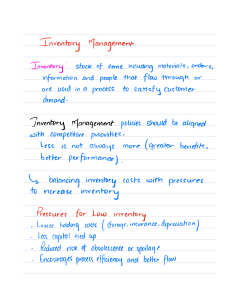 Inventory Management
Inventory : stock of items including materials, orders,
information and people that flow through or
are used in a process to satisfy customer
demand.
Inventory Management policies should be aligned
with competitive priorities.
Less is not always more (greater benefits,
better performance).
↳ balancing inventory costs with pressures
to increase inventory
Pressures for Low inventory
- Lower holding costs (storage, insurance, depreciation)
- Less capital tied up
- Reduced risk of obsolescence or spoilage
- Encourages process efficiency and better flow